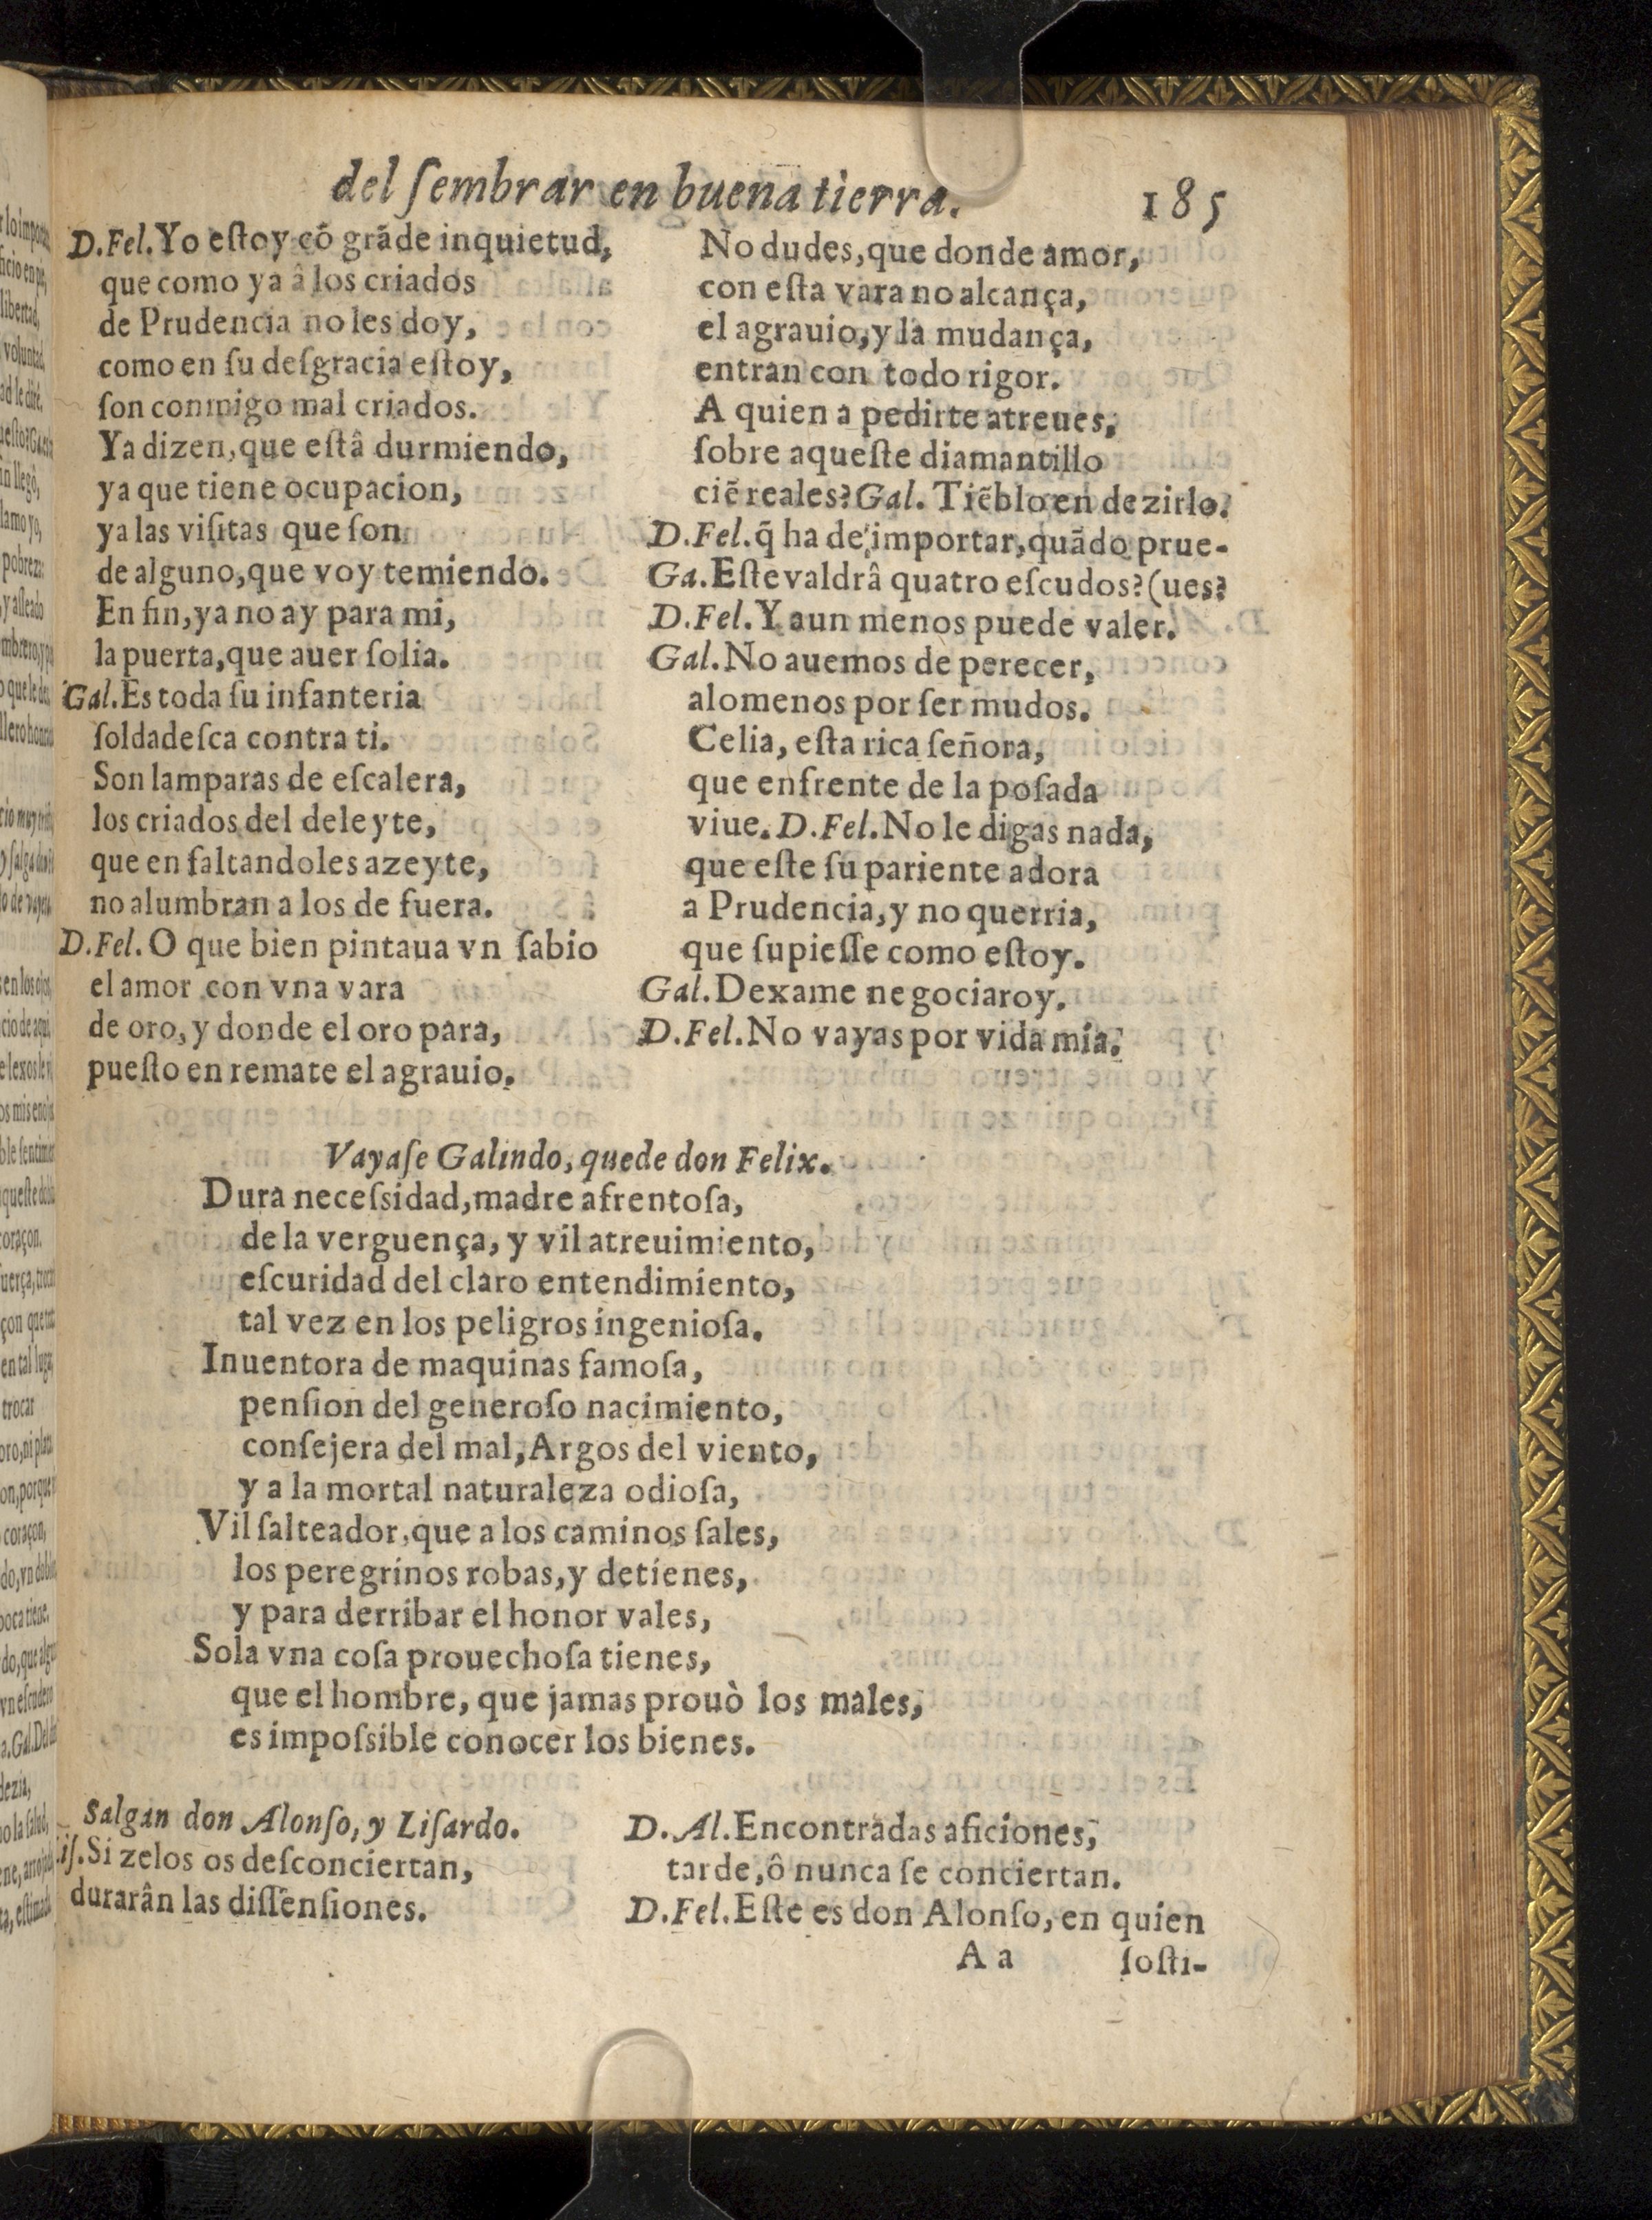 del ſembrar en buena tierra. 185
D.Fel. Yo eſtoy cõ grãde inquietud,
que como ya â los criados
de Prudencia no les doy,
como en ſu deſgracia eſtoy,
ſon conmigo mal criados.
Ya dizen, que eſtâ durmiendo,
ya que tiene ocupacion,
ya las viſitas que ſon
de alguno, que voy temiendo.
En fin, ya no ay para mi,
la puerta, que auer ſolia.
Gal. Es toda ſu infanteria
ſoldadeſca contra ti.
Son lamparas de eſcalera,
los criados del deleyte,
que en faltandoles azeyte,
no alumbran a los de fuera.
D.Fel. O que bien pintaua vn ſabio
el amor con vna vara
de oro, y donde el oro para,
pueſto en remate el agrauio.
No dudes, que donde amor,
con eſta vara no alcança,
el agrauio, y la mudança,
entran con todo rigor.
A quien a pedirte atreues,
ſobre aqueſte diamantillo
ciẽ reales? Gal. Tiẽblo en dezirlo.
D.Fel. q̃ ha de importar, quãdo prue-
Ga. Eſte valdrâ quatro eſcudos? (ues?
D.Fel. Y aun menos puede valer.
Gal. No auemos de perecer,
alomenos por ſer mudos.
Celia, eſta rica ſeñora,
que enfrente de la poſada
viue. D.Fel. No le digas nada,
que eſte ſu pariente adora
a Prudencia, y no querria,
que ſupieſſe como eſtoy.
Gal. Dexame negociar oy.
D.Fel. No vayas por vida mia.
Vayaſe Galindo, quede don Felix.
Dura neceſsidad, madre afrentoſa,
de la verguença, y vil atreuimiento,
eſcuridad del claro entendimiento,
tal vez en los peligros ingenioſa.
Inuentora de maquinas famoſa,
penſion del generoſo nacimiento,
conſejera del mal, Argos del viento,
y a la mortal naturaleza odioſa,
Vil ſalteador, que a los caminos ſales,
los peregrinos robas, y detienes,
y para derribar el honor vales,
Sola vna coſa prouechoſa tienes,
que el hombre, que jamas prouò los males,
es impoſsible conocer los bienes.
Salgan don Alonſo, y Liſardo.
iſ. Si zelos os deſconciertan,
durarân las diſſenſiones.
D. Al. Encontradas aficiones,
tarde, ô nunca ſe conciertan.
D.Fel. Eſte es don Alonſo, en quien
A a ſoſti-